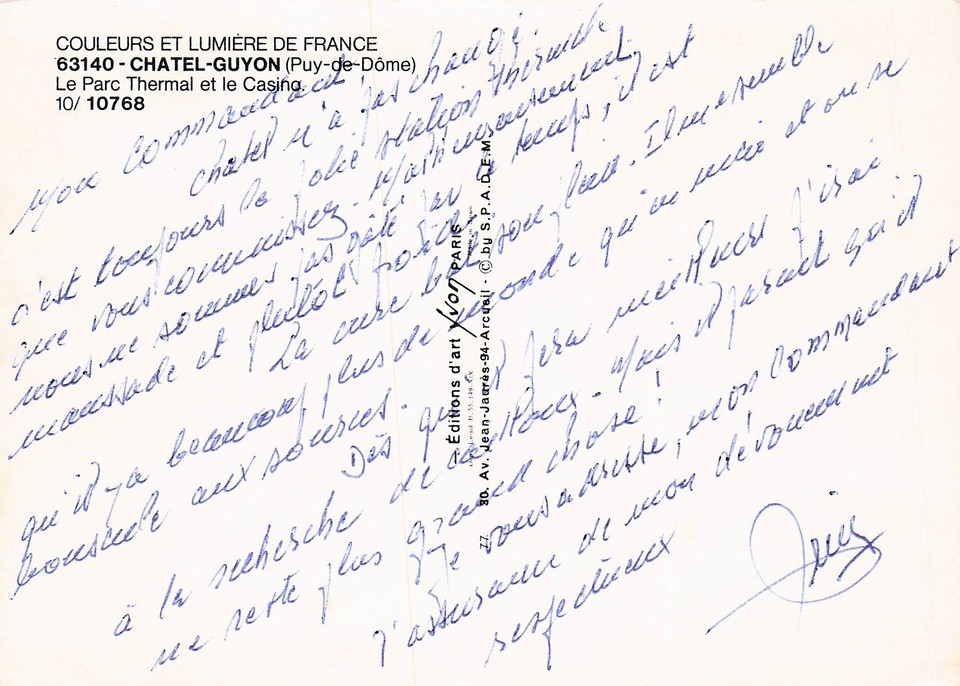 COULEURS ET LUMIÈRE DE FRANCE
63140 - CHATEL-GUYON (Puy-de-Dôme)
Le Parc Thermal et le Casino.
10/ 10768
Mon Commandant
Chatel n'a pas changé.
c'est toujours la jolie station thermale
que vous connaissez. Malheureusement
nous ne sommes pas gâté par le temps, il est
maussade et plutôt froid.
La cure bat son plein. Il me semble
qu'il y a beaucoup plus de monde qu'en mai et on se
bouscule aux sources.
Dès qu'il fera meilleur j'irai
à la recherche de cailloux. Mais il parait qu'il
ne reste plus grand chose !
Je vous adresse, mon Commandant
l'assurance de mon dévouement
respectueux
Éditions d'art Yvon PARIS
80. Av. Jean-Jaurès-94-Arcueil - © by S.P.A.D.E.M.
77